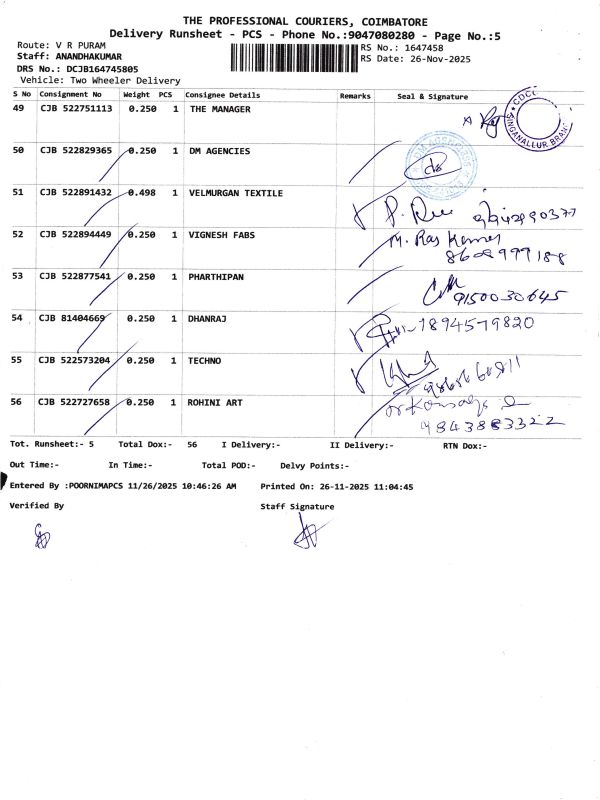 THE PROFESSIONAL COURIERS, COIMBATORE
Delivery Runsheet - PCS - Phone No.:9047080280 - Page No.:5
Route: V R PURAM
RS No.: 1647458
Staff: ANANDHAKUMAR
RS Date: 26-Nov-2025
DRS No.: DCJB164745805
Vehicle: Two Wheeler Delivery
S No Consignment No Weight PCS Consignee Details Remarks Seal & Signature
49 CJB 522751113 0.250 1 THE MANAGER
SINGANALLUR BRAN
50 CJB 522829365 0.250 1 DM AGENCIES
DM AGENCIES
51 CJB 522891432 0.498 1 VELMURGAN TEXTILE
52 CJB 522894449 0.250 1 VIGNESH FABS
M. Raj Kumar
53 CJB 522877541 0.250 1 PHARTHIPAN
9150030645
54 CJB 81404669 0.250 1 DHANRAJ
7894579820
55 CJB 522573204 0.250 1 TECHNO
56 CJB 522727658 0.250 1 ROHINI ART
9843883322
Tot. Runsheet:- 5 Total Dox:- 56 I Delivery:- II Delivery:- RTN Dox:-
Out Time:- In Time:- Total POD:- Delvy Points:-
Entered By :POORNIMAPCS 11/26/2025 10:46:26 AM Printed On: 26-11-2025 11:04:45
Verified By Staff Signature